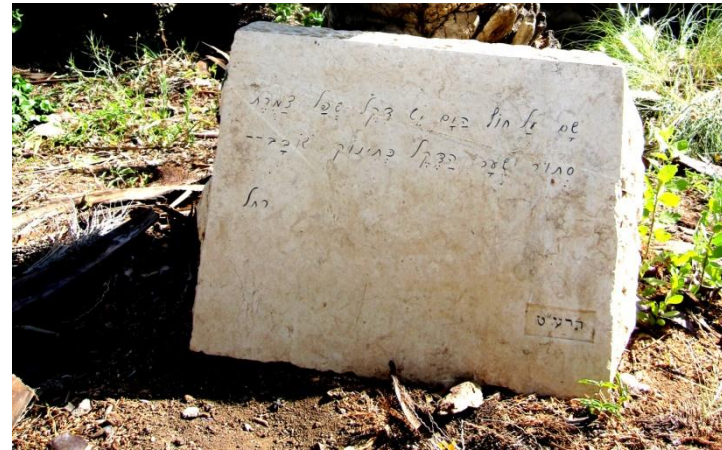 שָׁם עַל חוֹף הַיָּם יֵשׁ דֶּקֶל שְׁפַל צַמֶּרֶת
סְתוּר שֵׂעָר הַדֶּקֶל כְּתִינוֹק שׁוֹבָב--
רחל